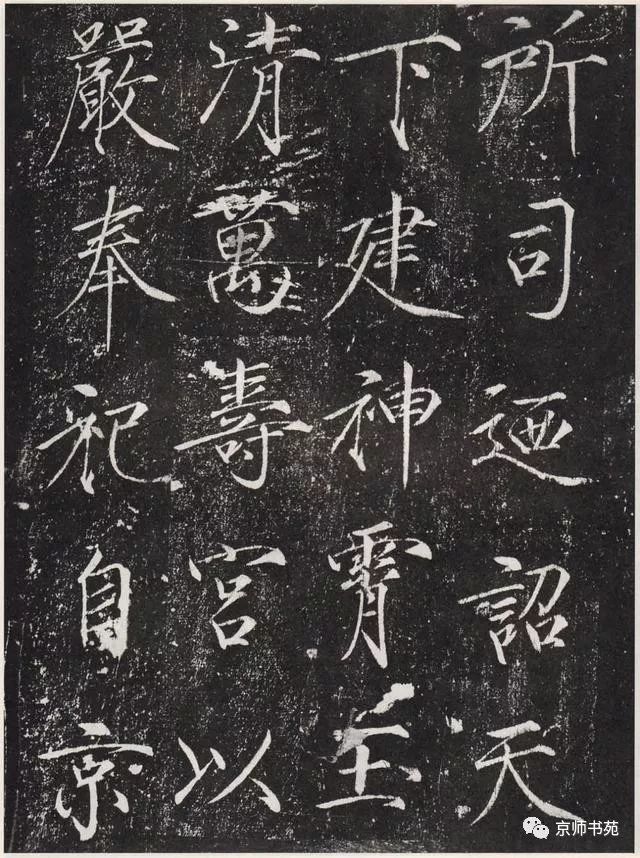 所司迺詔天
下建神霄玉
清萬壽宮以
嚴奉祀自京
京师书苑